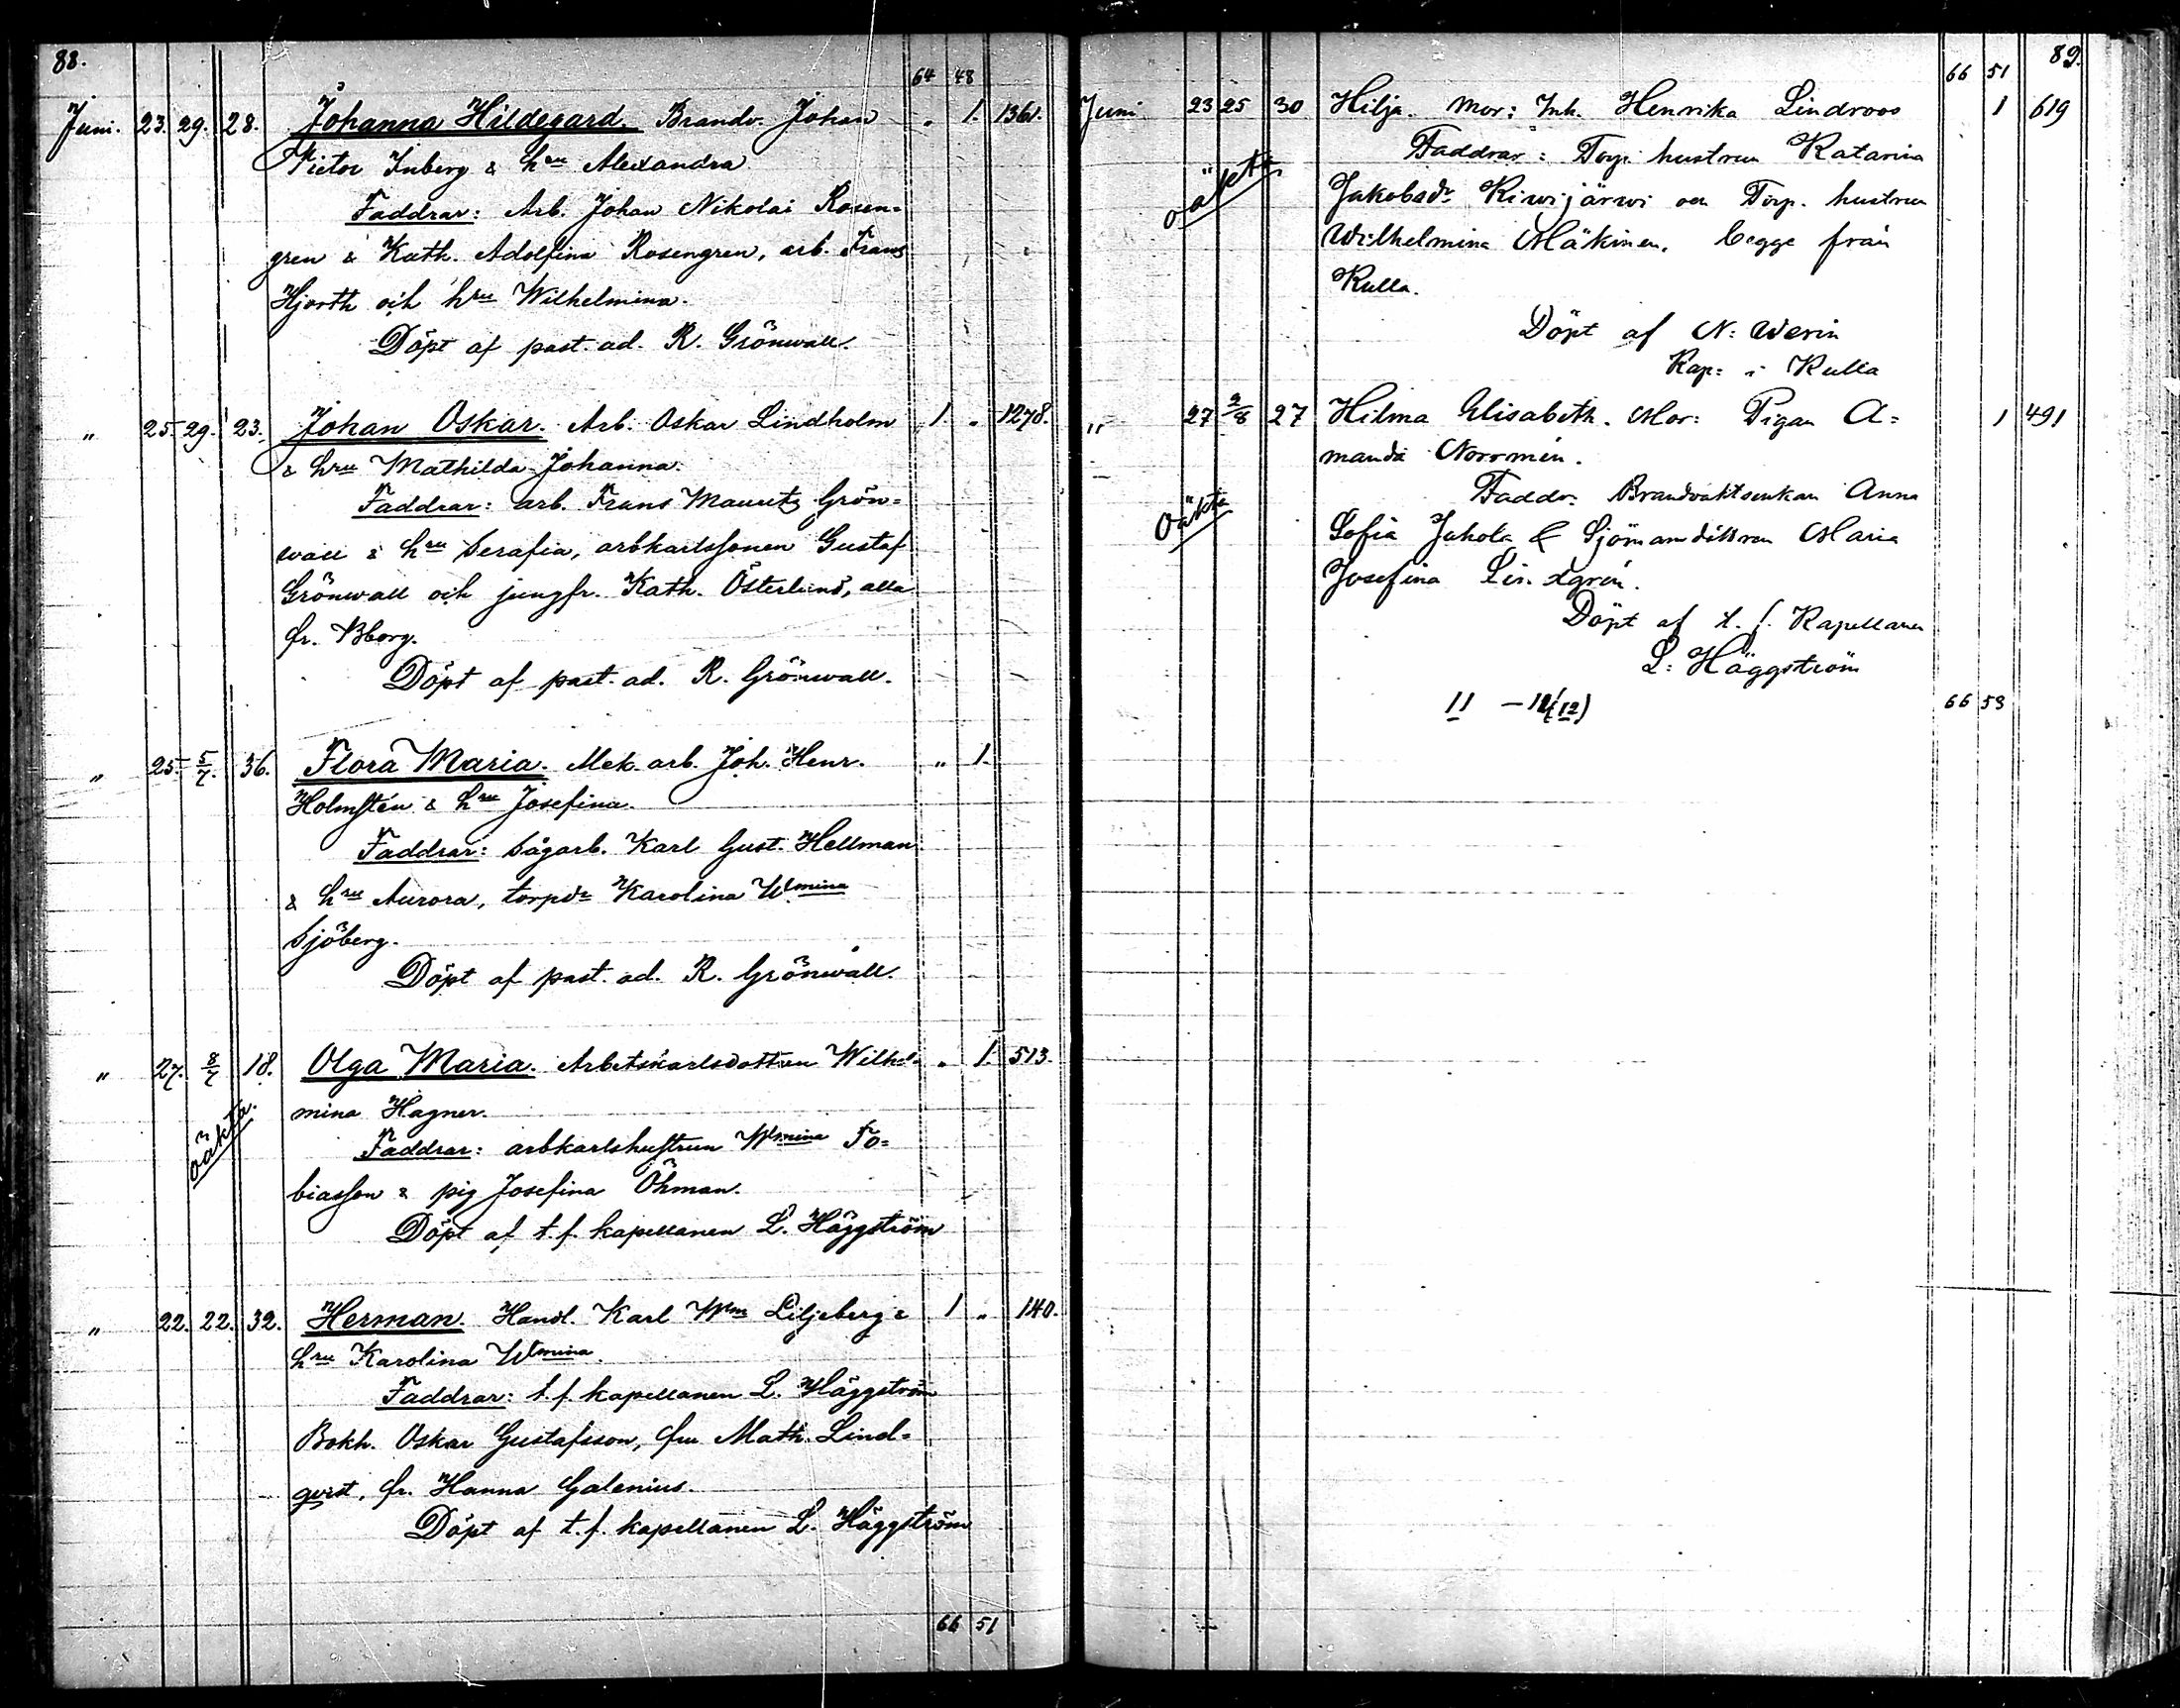 88.
64 48
Juni. 23. 29. 28. Johanna Hildegard. Brandv. Johan „ 1. 1361.
Victor Inberg & hru Alexandra
Faddrar: Arb. Johan Nikolai Rosen=
gren & Kath. Adolfina Rosengren, arb. Frans
Hjorth och hru Wilhelmina.
Döpt af past. ad. R. Grönwall.
„ 25. 29. 23. Johan Oskar. Arb. Oskar Lindholm 1. „ 1278.
& hru Mathilda Johanna.
Faddrar: arb. Frans Mauritz Grön=
wall & hru Serafia, arbkarlssonen Gustaf
Grönwall och jungfr. Kath. Österlund, alla
fr. Bborg.
Döpt af past. ad. R. Grönwall.
„ 25. 5/7. 36. Flora Maria. Mek. arb. Joh. Henr. „ 1.
Holmstén & hru Josefina.
Faddrar: Sågarb. Karl Gust. Hellman
& hru Aurora, torpdr Karolina Wmina
Sjöberg.
Döpt af past. ad. R. Grönwall.
„ 27. 8/7 18. Olga Maria. Arbetskarlsdottren Wilhel= „ 1. 513.
oäkta. mina Hagner.
Faddrar: arbkarlshustrun Wmina To=
biasson & pig Josefina Öhman.
Döpt af t. f. kapellanen L. Häggström
„ 22. 22. 32. Herman. Handl. Karl Wlm Liljeberg & 1 „ 140.
hru Karolina Wmina.
Faddrar: t. f. kapellanen L. Häggström
Bokh. Oskar Gustafsson, fru Math. Lind=
qvist, fr. Hanna Galenius.
Döpt af t. f. kapellanen L. Häggström
66 51
89.
66 51
Juni 23 25 30 Hilja. Mor: Inh. Henrika Lindroos 1 619
oäkta Faddrar: Torp. hustrun Katarina
Jakobsdr Kiwijärwi och Torp. hustrun
Wilhelmina Mäkinen, begge från
Kulla.
Döpt af N: Werin
Kap: i Kulla
„ 27 2/8 27 Hilma Elisabeth. Mor: Pigan A= 1 491
manda Norrmén.
oäkta Faddr. Brandvaktsenkan Anna
Sofia Jakola & Sjömansdottren Maria
Josefina Lindgrén.
Döpt af t. f. Kapellanen
L: Häggström
11 – 12 (12) 66 53